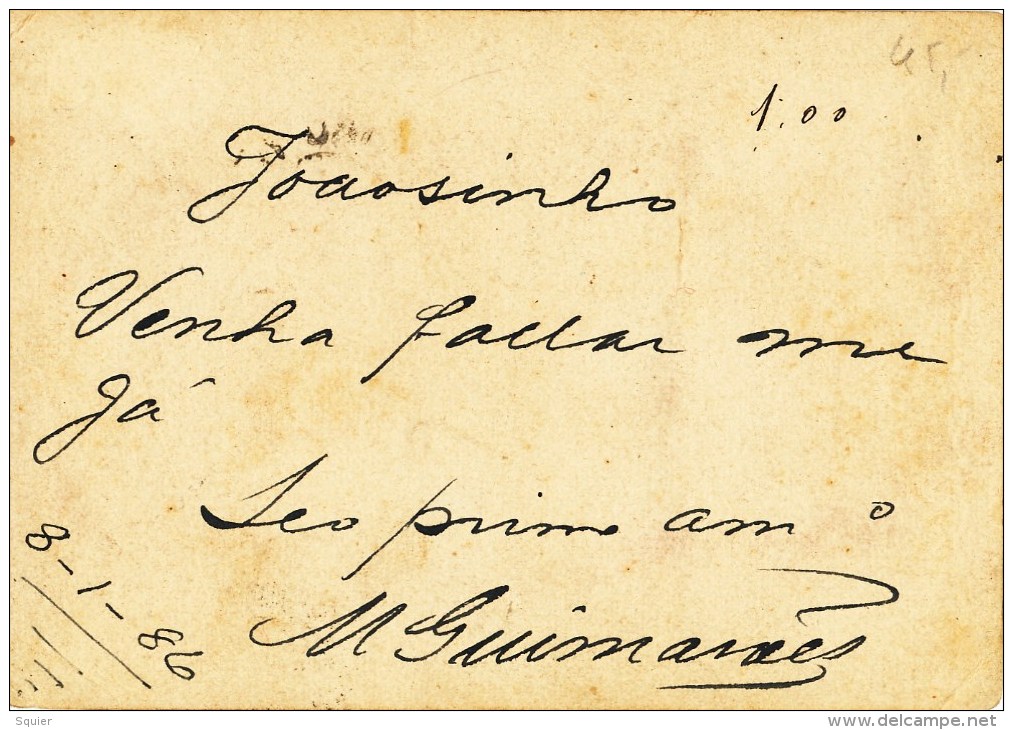 45,
1.00
Joaosinho
Venha fallar me
Já
Seo primo am º
M Guimarães
8-1-86
Squier
www.delcampe.net